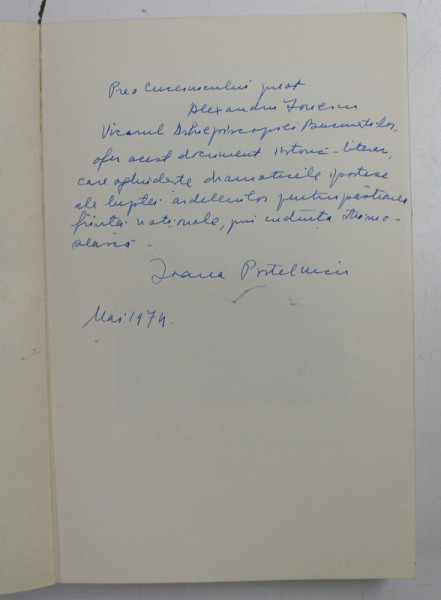 Prea Cucernicului preot
Alexandru Ionescu
Vicarul Arhiepiscopiei Bucureștilor,
ofer acest document istorico-literar,
care oglindește dramaticele ipostaze
ale luptei ardelenilor pentru păstrarea
ființei naționale, prin credința
Ioana Postelnicu
Mai 1974.